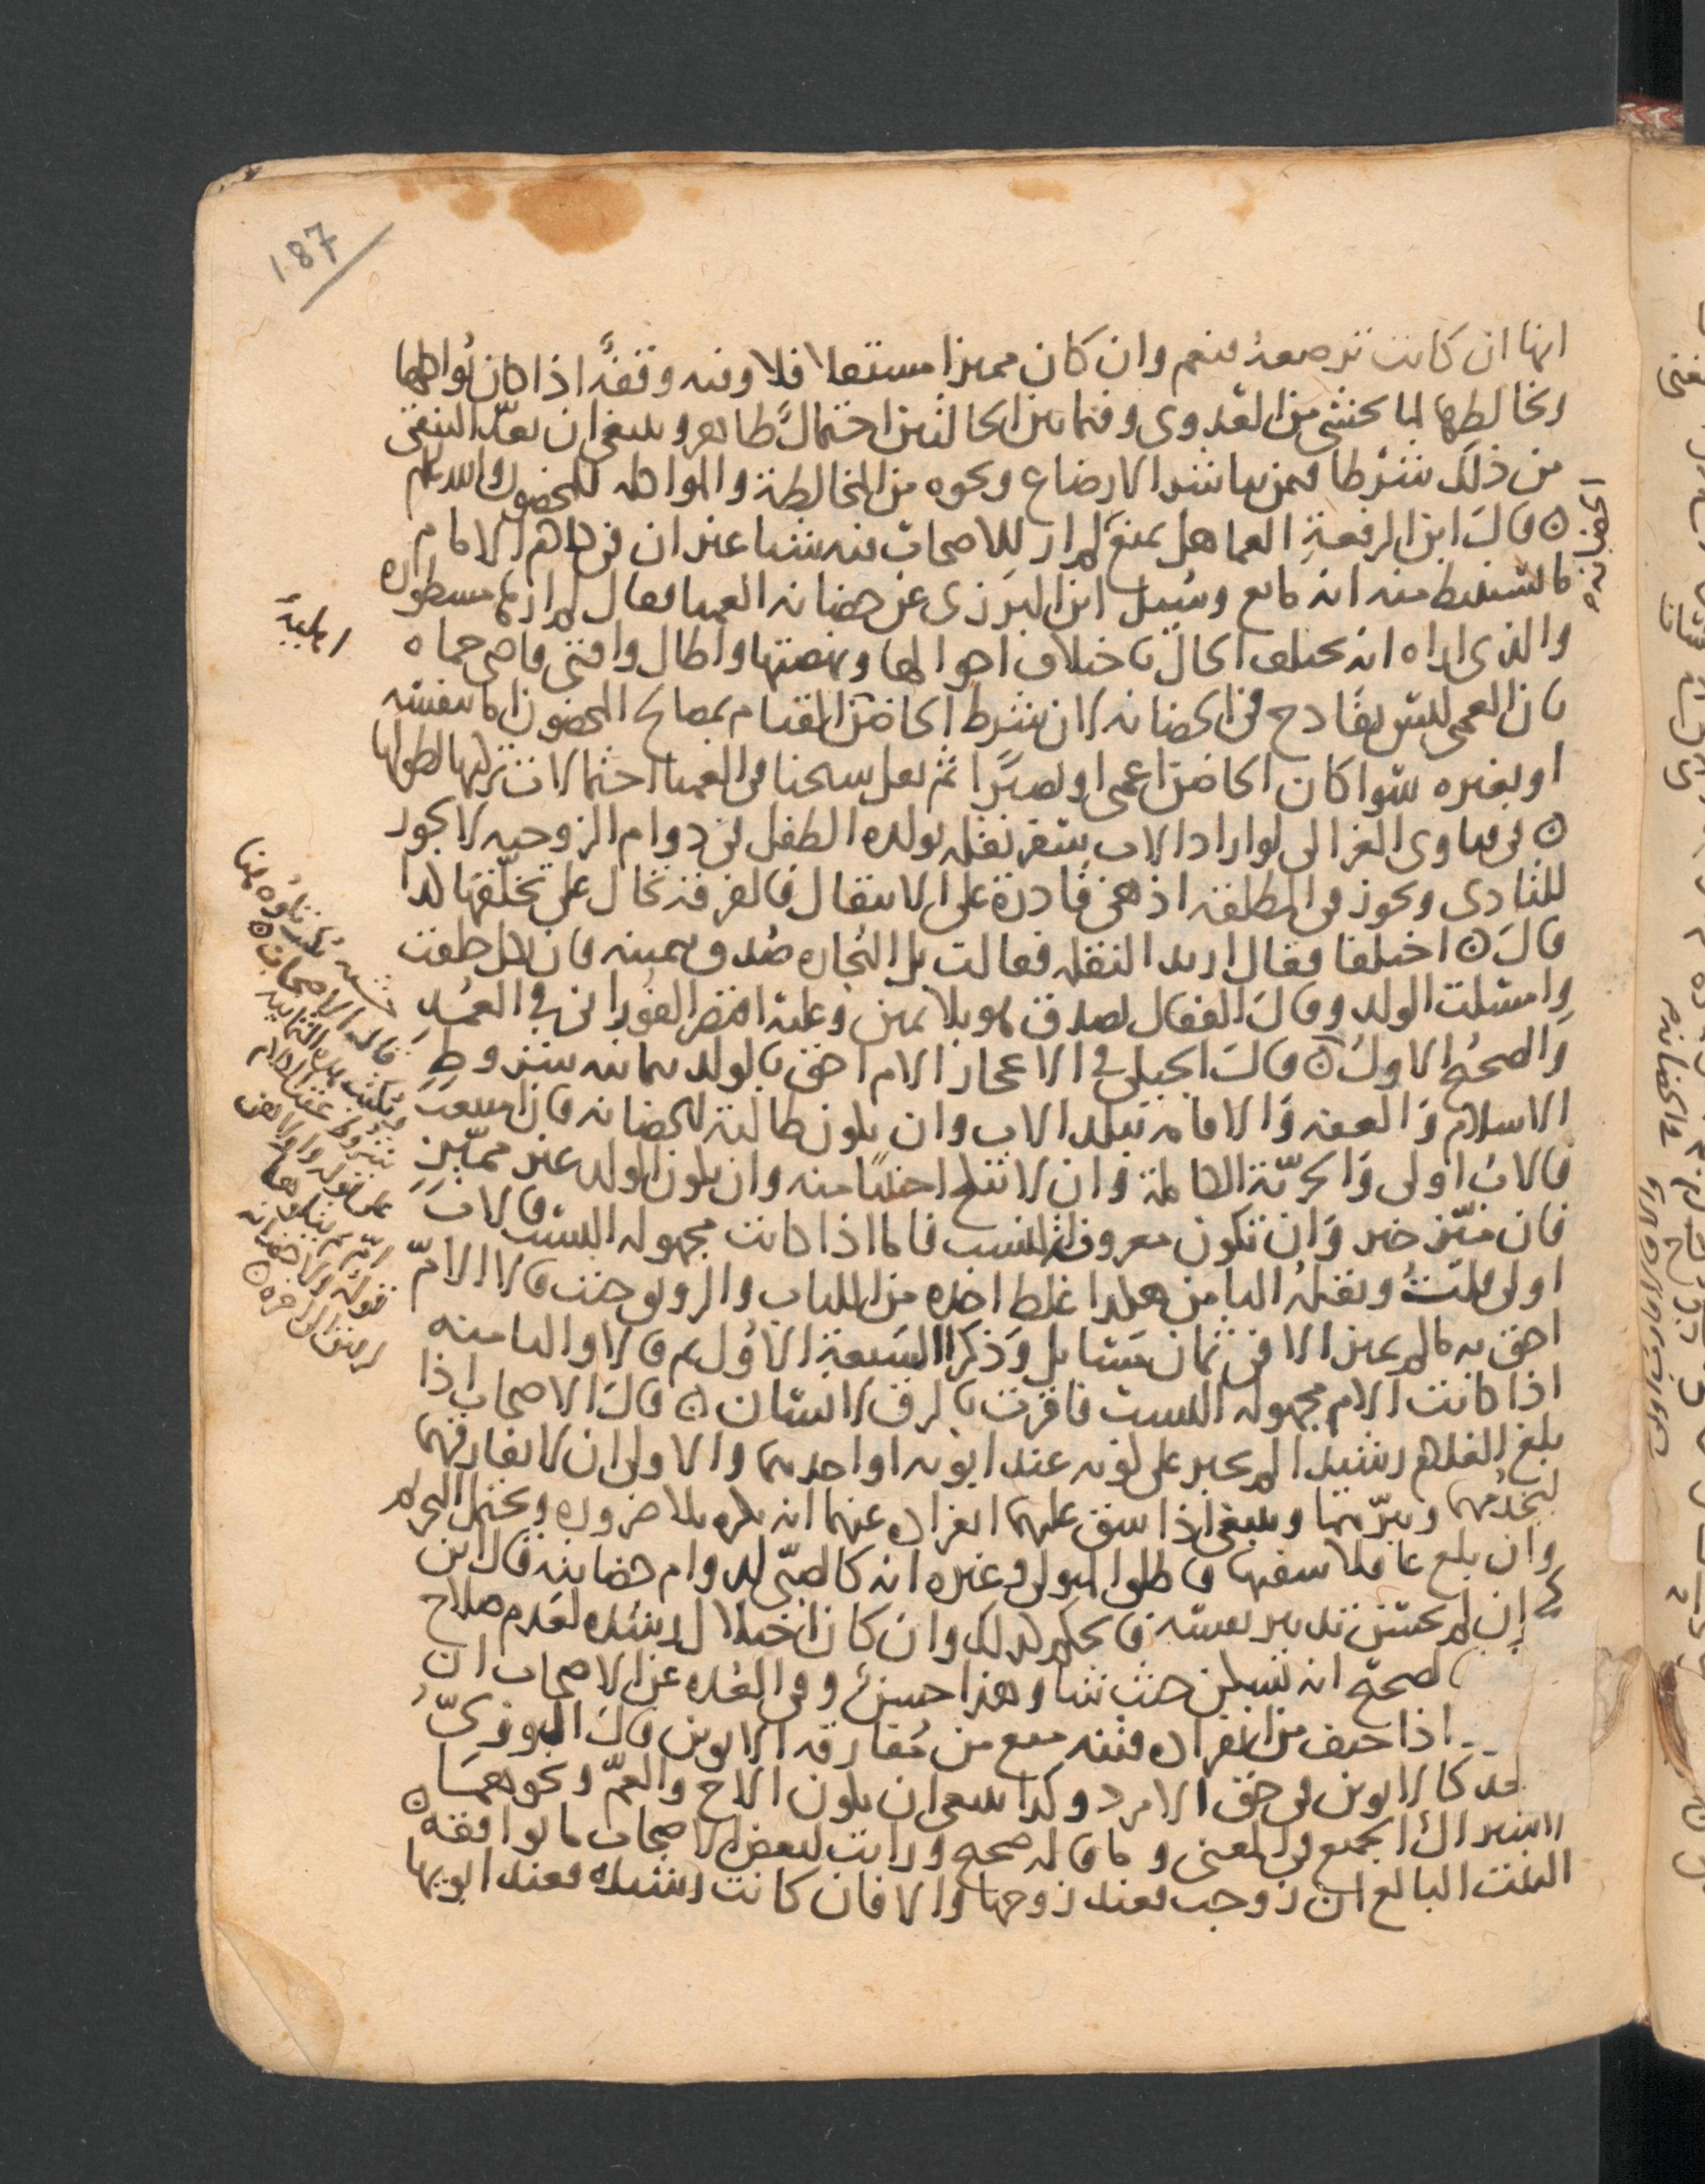 187
انها ان كانت ترضعه فنعم وان كان مميزا مستقلا فلا وفيه وقفة اذا كان يواكلها
ويخالطها لما يخشى من العدوى وفيما بين الحالتين احتمال ظاهر وينبغي ان يعد النقي
من ذلك شرطا فيمن يباشر الارضاع ونحوه من المخالطة والمواكله للمحضون والله اعلم
قال ابن الرفعة العما هل يمنع لم ار للاصحاب فيه شيا غير ان في كلام الامام
ما يستنبط منه انه مانع وسيل ابن البزري عن حضانه العميا فقال لم ارها مسطوره
والذي اراه انه يختلف الحال باختلاف احوالها ونهضتها واطال وافتى قاضي حماه
بان العمى ليس بقادح في الحضانه لان شرط الحاضن القيام بمصالح المحضون اما بنفسه
او بغيره سوا كان الحاضن اعمى او بصيرا ثم نقل شيخنا في العميا احتمالات تركتها لطولها
في فتاوى الغزالي لو اراد الاب سفر نقله بولده الطفل في دوام الزوجيه لا يجوز
للتادى ويجوز في المطلقه اذ هي قادرة على الانتقال فالفرقه تحال على تخلفها كذا
قال اختلفا فقال اريد النقله فقالت بل التجاره صدق بيمينه فان نكل حلفت
وامسكت الولد وقال القفال يصدق هو بلا يمين وعليه اقتصر الفوراني في العمد
والصحيح الاول قال الجيلي في الاعجاز الام احق بالولد بثمانيه شروط
الاسلام والعفه والاقامه ببلد الاب وان يكون طالبة للحضانه فان امتنعت
فالاب اولى والحرية الكاملة وان لا تنكح اجنبيا منه وان يكون الولد غير مميز
فان ميز خير وان تكون معروفة النسب فاما اذا كانت مجهوله النسب فالاب
اولى قلت ونقله الثامن هكذا غلط اخذه من اللباب والرونق حيث قالا الام
احق به ما لم يميز الا في ثمان مسايل وذكرا السبعة الاول ثم قالا والثامنه
اذا كانت الام مجهوله النسب فاقرت بالرق لانسان قال الاصحاب اذا
بلغ الغلام رشيدا لم يجبر على كونه عند ابويه او احدهما والاولى ان لا يفارقهما
ليخدمهما ويبرهما وينبغي اذا شق عليهما انفراده عنهما انه يكره بلا ضروره ويحتمل التحريم
وان بلغ عاقلا سفيها فاطلق المتولي وغيره انه كالصبي لدوام حضانته قال ابن
كج ان لم يحسن تدبير نفسه فالحكم كذلك وان كان اختلال رشده لعدم صلاح
الصحيح انه يسكن حيث شا وهذا حسن وفي العده عن الاصحاب ان
اذا خيف من انفراده فتنه منع من مفارقه الابوين قال النووي
الجد كالابوين في حق الامرد وكذا ينبغي ان يكون الاخ والعم ونحوهما
لاشتراك الجميع في المعنى وما قاله صحيح ورايت لبعض الاصحاب ما يوافقه
البنت البالغ ان زوجت فعند زوجها والا فان كانت رشيده فعند ابويها
الحضانه
اهليه
قاله الاصحاب